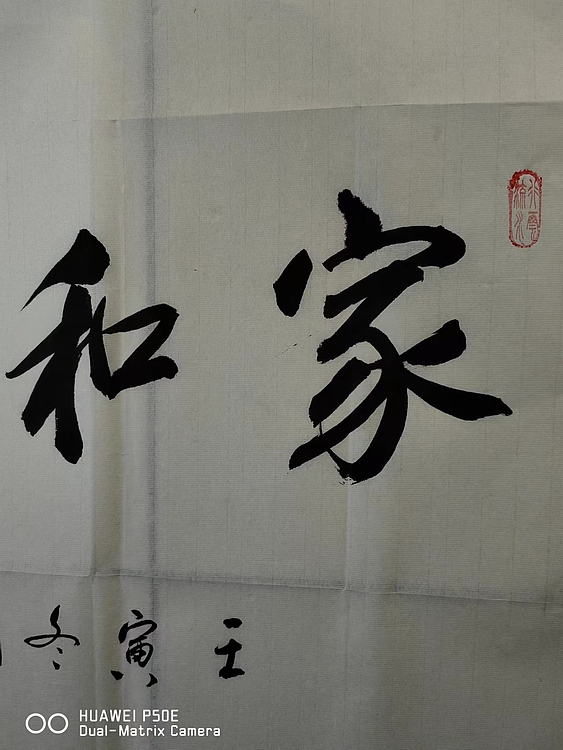 行雲流水
家和
壬寅冬
HUAWEI P50E
Dual-Matrix Camera